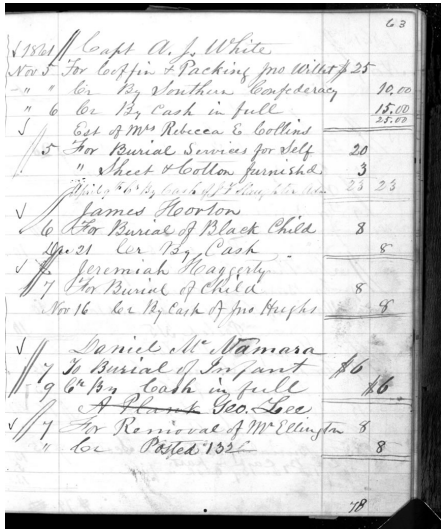 63
√ 1861 Capt A. J. White
Nov 5 For Coffin & Packing Jno Willet $ 25
" " Cr By Southern Confederacy 10.00
" 6 Cr By Cash in full 15.00
25.00
√ Est of Mrs Rebecca E Collins
5 For Burial Services for Self 20
" Sheet & Cotton furnished 3
By Cash of 23 23
√ James Horton
6 For Burial of Black Child 8
21 Cr By Cash 8
√ Jeremiah Haggerty
7 For Burial of Child 8
Nov 16 Cr By Cash of Jno Hughs 8
√ Daniel McNamara
7 To Burial of Infant $6
9 Cr By Cash in full $6
A Plank Geo. Lee
√ 7 For Removal of Mr Ellington 8
" Cr Posted 132 8
78